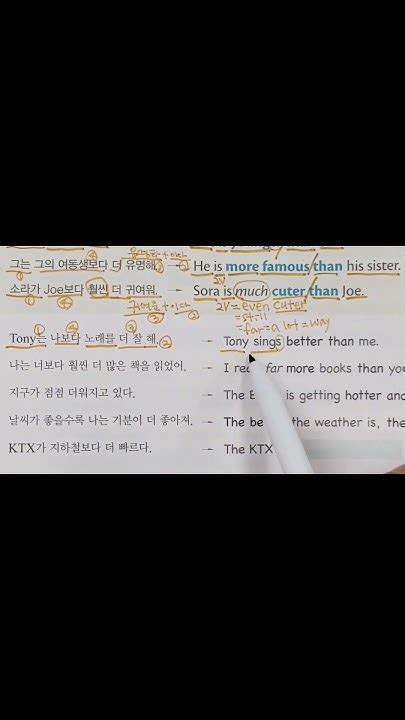 유명한 + 이다
그는 그의 여동생보다 더 유명해. → He is more famous than his sister.
소라가 Joe보다 훨씬 더 귀여워. → Sora is much cuter than Joe.
귀여운 + 이다 2V = even cuter
= still
= far = a lot = way
Tony는 나보다 노래를 더 잘 해. → Tony sings better than me.
나는 너보다 훨씬 더 많은 책을 읽었어. → I far more books than
지구가 점점 더워지고 있다. → The is getting hotter and
날씨가 좋을수록 나는 기분이 더 좋아져. → The be the weather is, the
KTX가 지하철보다 더 빠르다. → The KTX